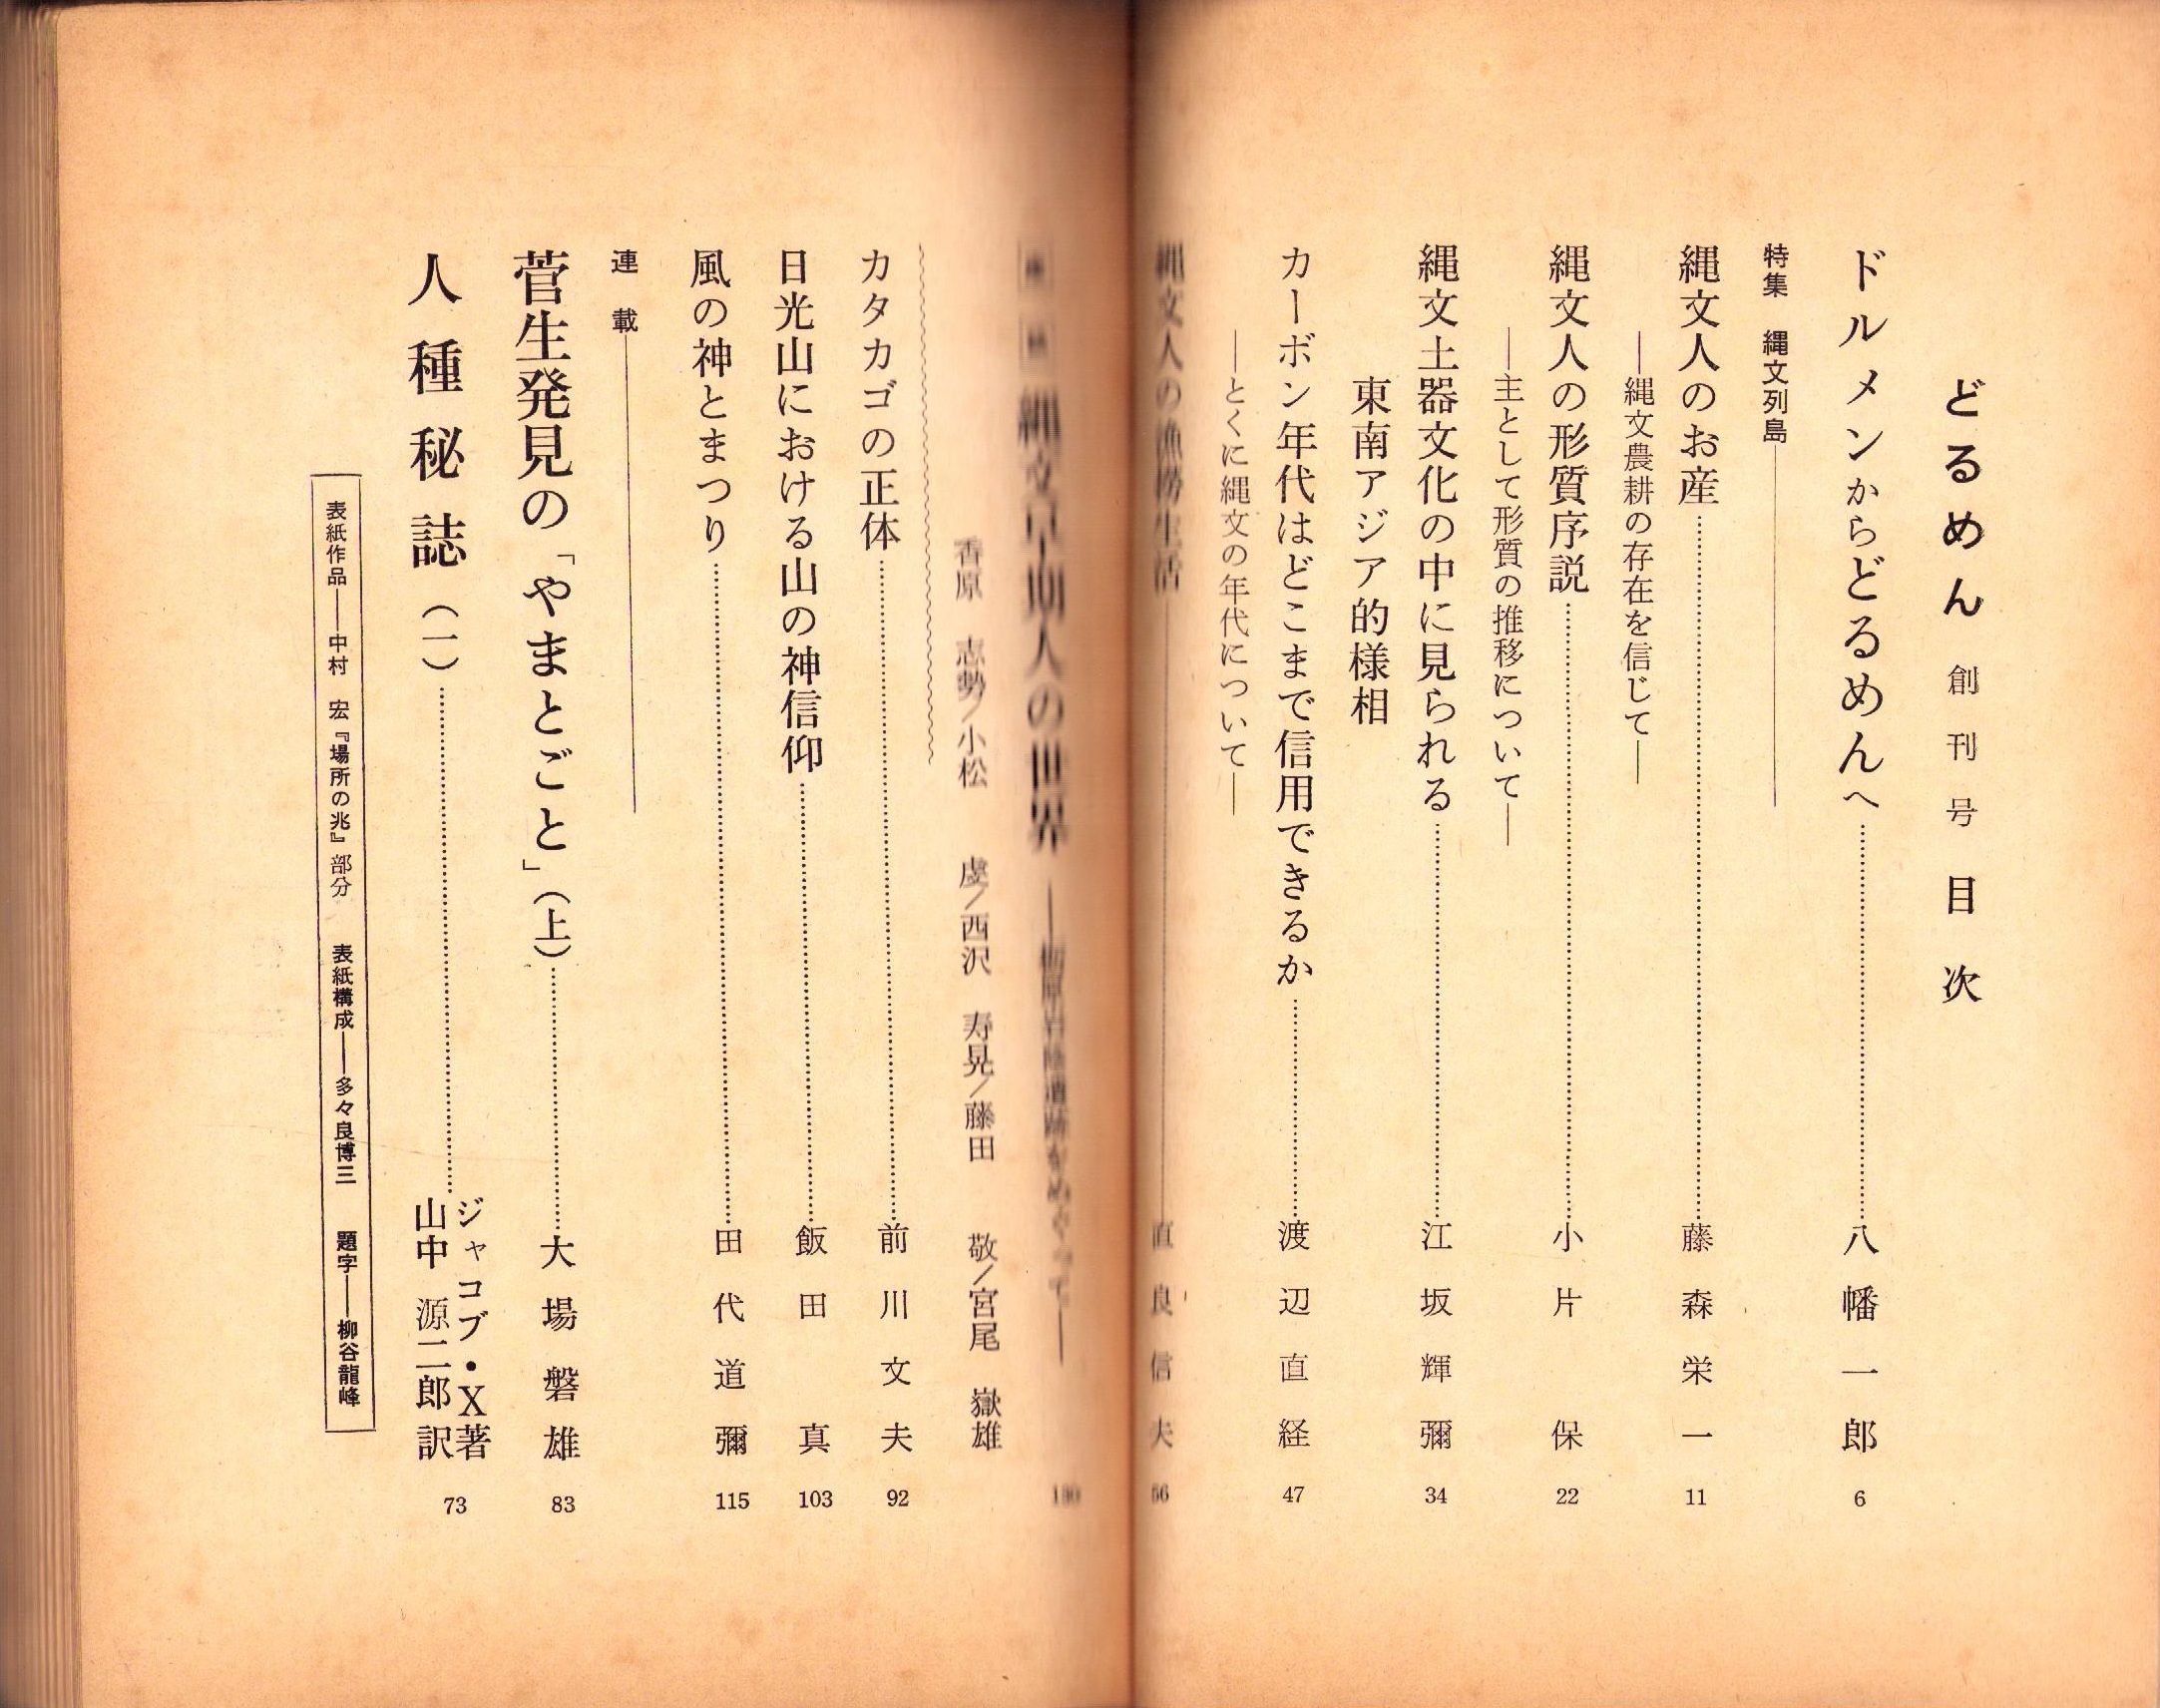 どるめん 創刊号 目次
ドルメンからどるめんへ 八幡一郎 6
特集 縄文列島
縄文人のお産 藤森栄一 11
―縄文農耕の存在を信じて―
縄文人の形質序説 小片保 22
―主として形質の推移について―
縄文土器文化の中に見られる 江坂輝彌 34
東南アジア的様相
カーボン年代はどこまで信用できるか 渡辺直経 47
―とくに縄文の年代について―
縄文人の漁撈生活 直良信夫 56
縄文早期人の世界 ―栃原岩陰遺跡をめぐって―
香原 志勢/小松 虔/西沢 寿晃/藤田 敬/宮尾 嶽雄
カタカゴの正体 前川文夫 92
日光山における山の神信仰 飯田真 103
風の神とまつり 田代道彌 115
連載
菅生発見の「やまとごと」(上) 大場磐雄 83
人種秘誌(一) ジャコブ・X著 山中源二郎訳 73
表紙作品―中村 宏『場所の兆』部分 表紙構成―多々良博三 題字―柳谷龍峰